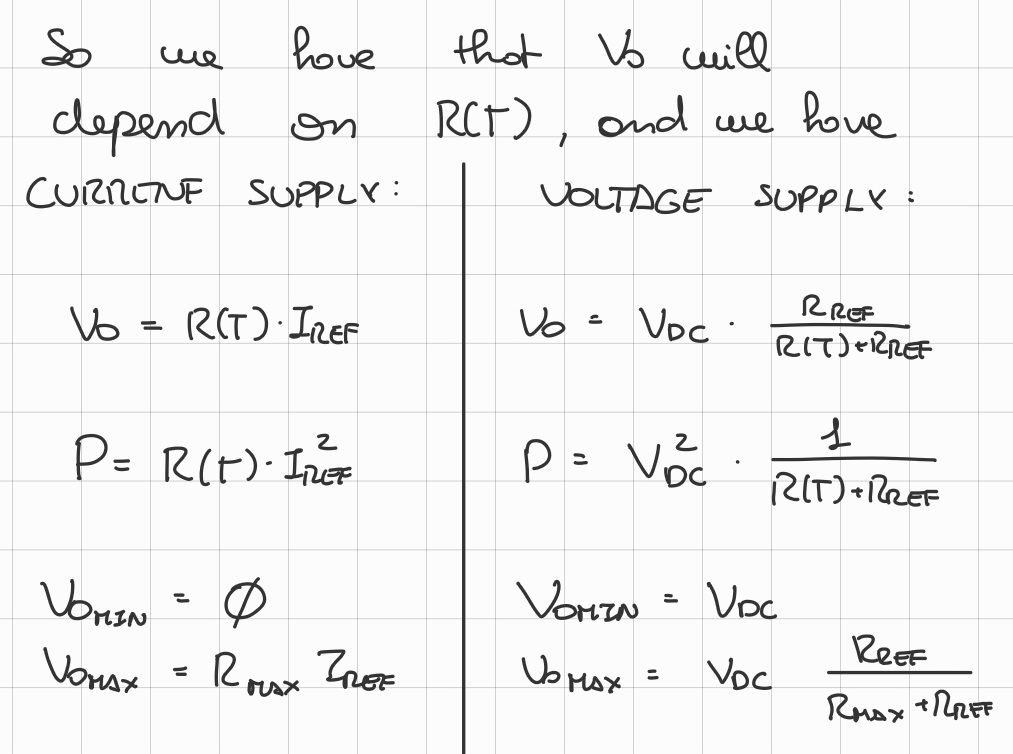 So we have that Vo will
depend on R(T), and we have
CURRENT SUPPLY:
Vo = R(T)·I_REF
P = R(t)·I_REF^2
Vo_MIN = ∅
Vo_MAX = R_MAX I_REF
VOLTAGE SUPPLY:
Vo = V_DC · R_REF / (R(T)+R_REF)
P = V_DC^2 · 1 / (R(T)+R_REF)
Vo_MIN = V_DC
Vo_MAX = V_DC R_REF / (R_MAX+R_REF)